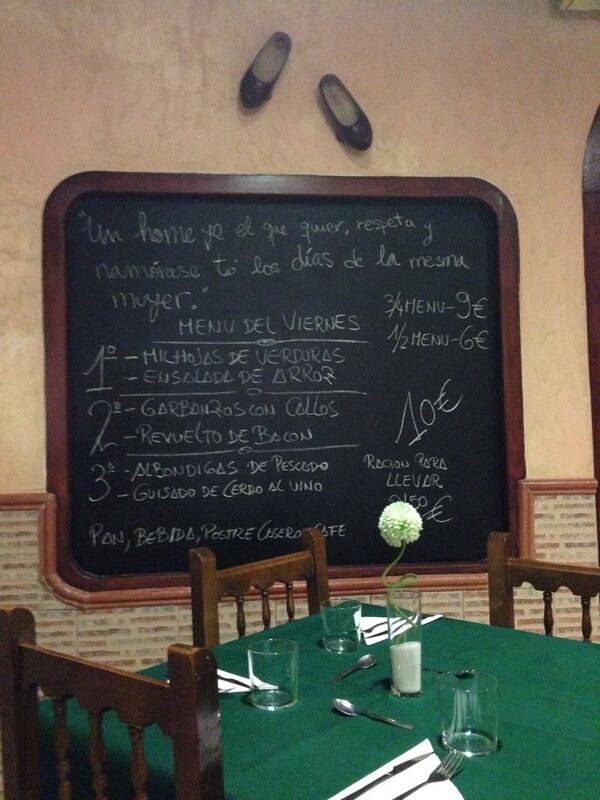 "Un home ye el que quier, respeta y
namórase tó los días de la mesma
muyer."
MENU DEL VIERNES
1º - MILHOJAS DE VERDURAS
- ENSALADA DE ARROZ
2º - GARBANZOS CON CALLOS
- REVUELTO DE BACON
3º - ALBONDIGAS DE PESCADO
- GUISADO DE CERDO AL VINO
PAN, BEBIDA, POSTRE CASERO, CAFE
3/4 MENU - 9€
1/2 MENU - 6€
10€
RACION PARA
LLEVAR
€